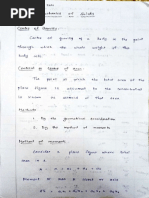 Mechanics of Solids
Centre of Gravity:
Centre of gravity of a body is the point
through which the whole weight of the
body acts.
Centroid or Centre of area:
The point at which the total area of the
plane figure is assumed to be concentrated
is known as centroid of that area.
Methods:
1. By the geometrical consideration
2. By the method of moments
Method of moments:
Consider a plane figure whose total
area is A
A = a₁ + a₂ + a₃ + a₄ +
Moment of area A about